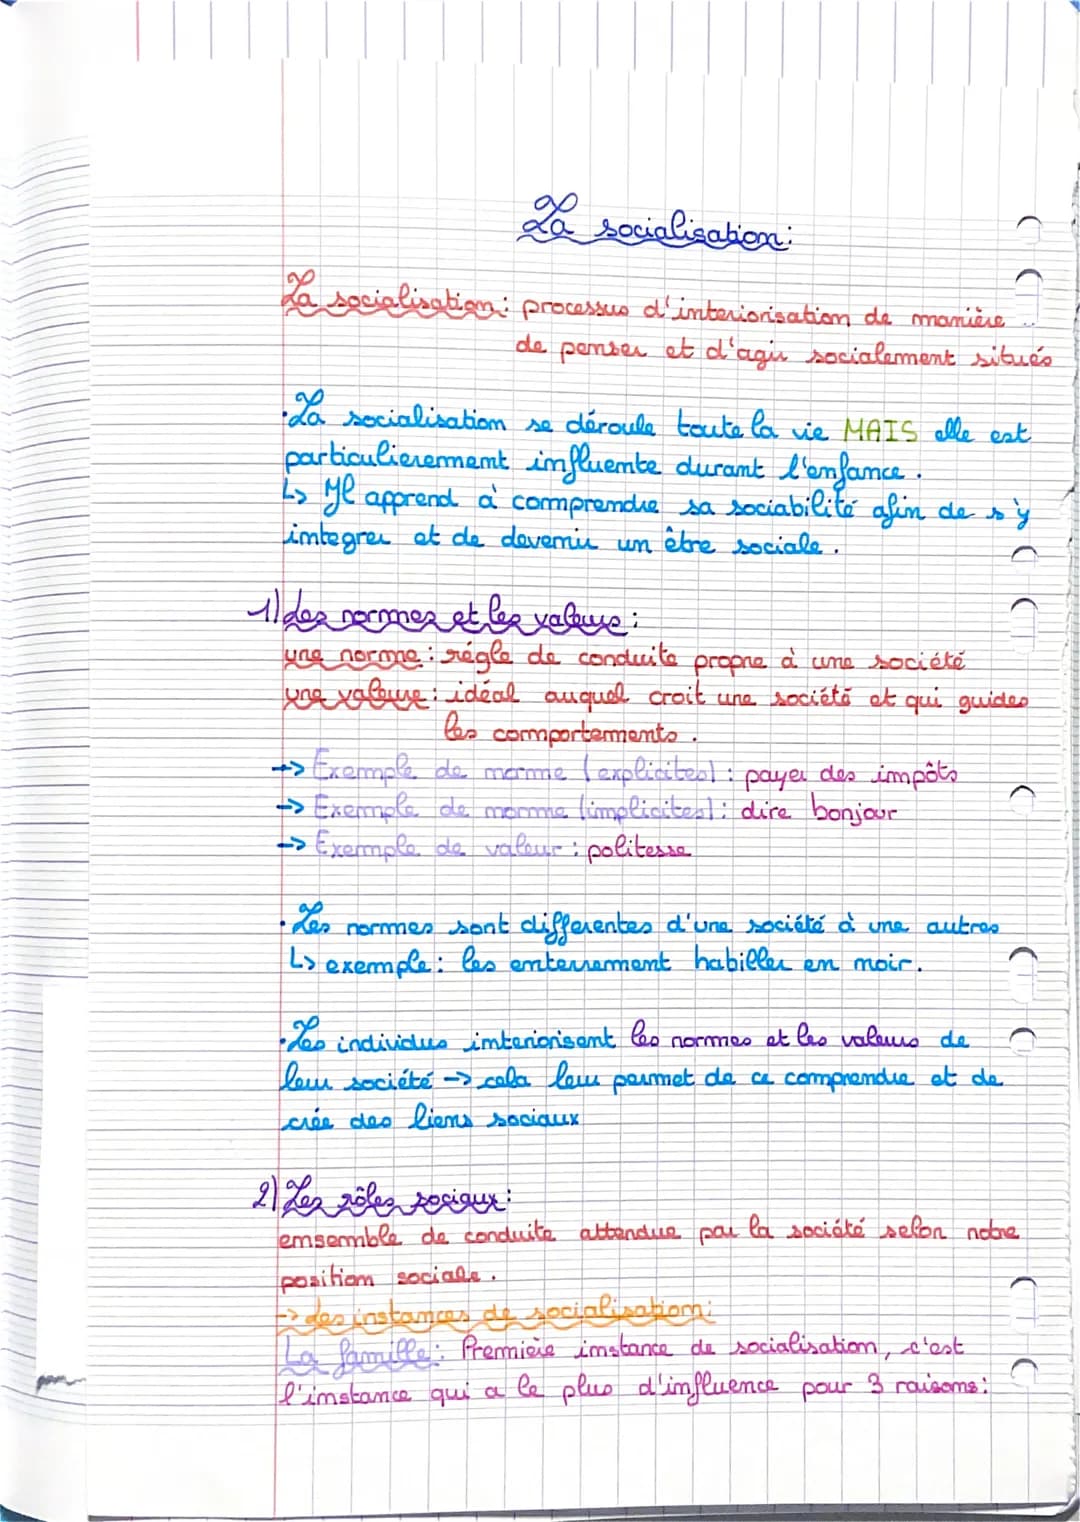 La socialisation:
La socialisation: processus d'interiorisation de manière
de penser et d'agir socialement situés
• La socialisation se déroule toute la vie MAIS elle est
particulierement influente durant l'enfance.
↳ Il apprend à comprendre sa sociabilité afin de s'y
integrer et de devenir un être sociale.
1) des normes et les valeurs:
une norme: régle de conduite propre à une société
une valeur: idéal auquel croit une société et qui guides
les comportements.
→ Exemple de norme (explicites): payer des impôts
→ Exemple de norme (implicites): dire bonjour
→ Exemple de valeur: politesse
• Les normes sont differentes d'une société à une autres
↳ exemple: les enterrement habiller en noir.
• Les individus interiorisent les normes et les valeurs de
leur société → cela leur permet de ce comprendre et de
crée des liens sociaux
2) Les rôles sociaux:
ensemble de conduite attendue par la société selon notre
position sociale.
→ des instances de socialisation:
La famille: Première instance de socialisation, c'est
l'instance qui a le plus d'influence pour 3 raisons: